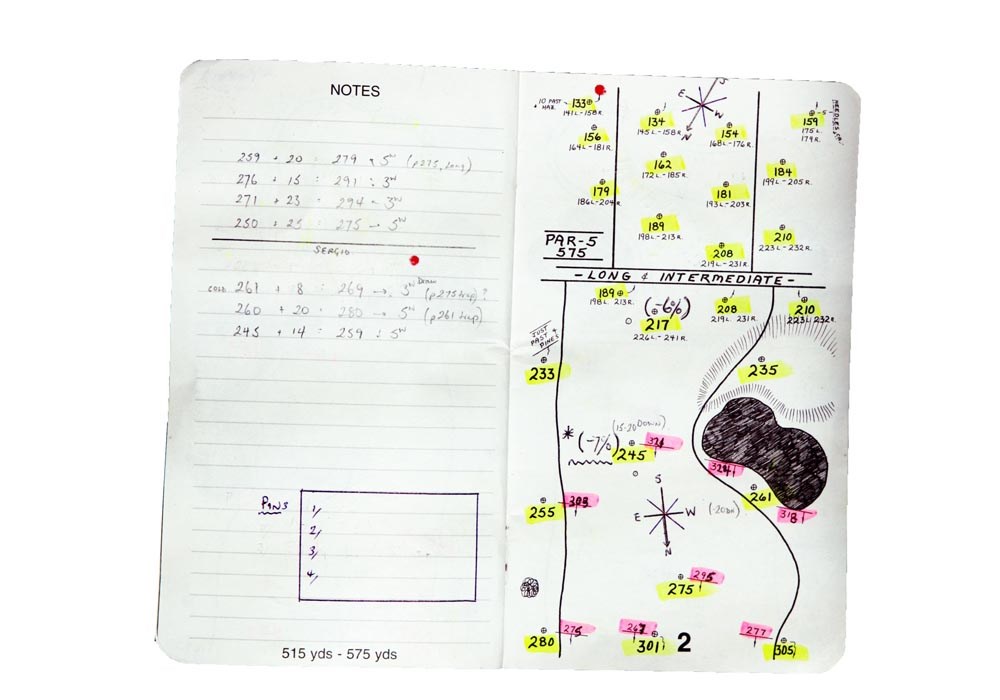 NOTES
259 + 20 : 279 5W (p275, Long)
276 + 15 : 291 : 3W
271 + 23 : 294 - 3W
250 + 25 : 275 → 5W
SERGIO
COLD 261 + 8 : 269 → 3W Down (p275 trap)?
260 + 20 : 280 → 5W (p261 trap)
245 + 14 : 259 : 5W
PINS
1/
2/
3/
4/
515 yds - 575 yds
10 PAST HAZ.
133
141L-158R.
156
164L-181R.
179
186L-204R
PAR-5
575
S
E
W
N
134
145L-158R.
154
168L-176R.
162
172L-185R.
181
193L-203R.
189
198L-213R.
208
219L-231R.
159
175L.
179R.
184
199L-205R.
210
223L-232R.
- LONG & INTERMEDIATE -
189
198L 213R.
(-6%)
217
226L-241R.
208
219L 231R.
210
223L 232R.
JUST PAST PINES
233
235
(15-20 DOWN)
* (-7%)
245
324
324
261
318
(-20 DN)
255
303
S
E
W
N
295
275
280
275
267
301
2
277
305